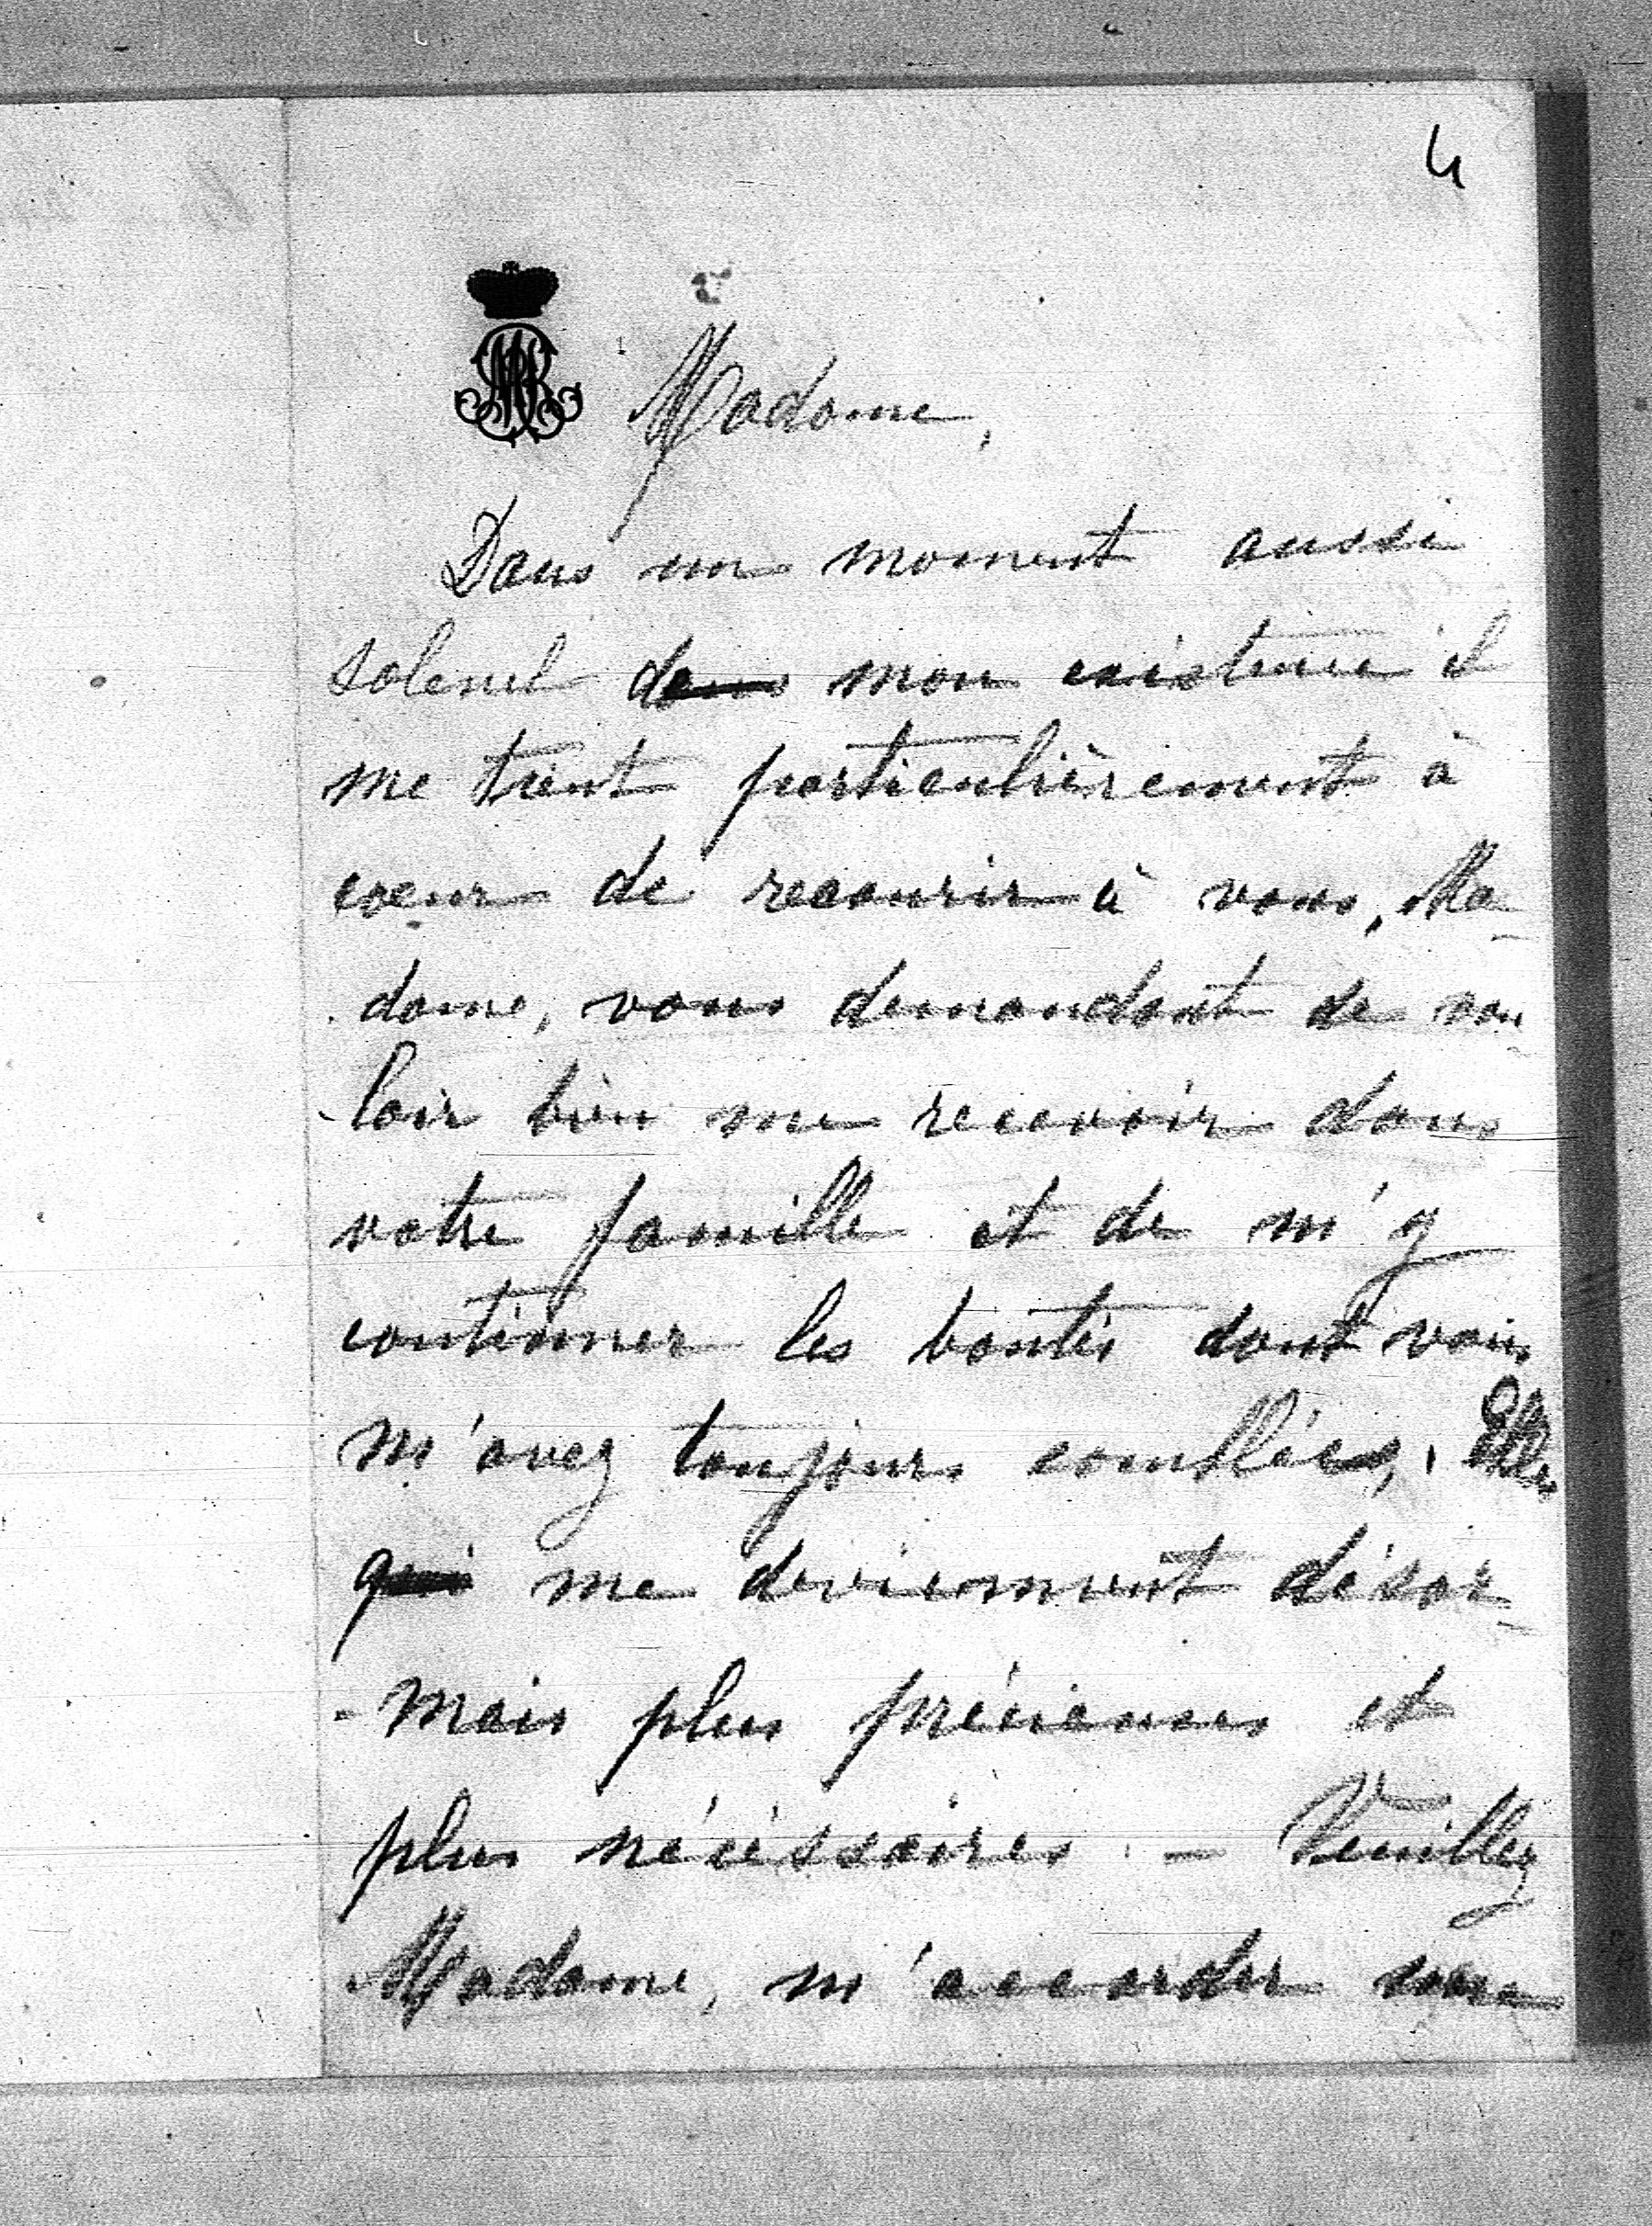 4
Madame,
Dans un moment aussi
solenel de mon existence il
me tient particulièrement à
coeur de recourir à vous, Ma-
dame, vous demandant de vou-
-loir bien me recevoir dans
votre famille et de m'y
continuer les bontés dont vous
m'avez toujours comblée, Elles
qui me deviennent désor-
-mais plus précieuses et
plus nécéssaires. - Veuillez
Madame, m'accorder